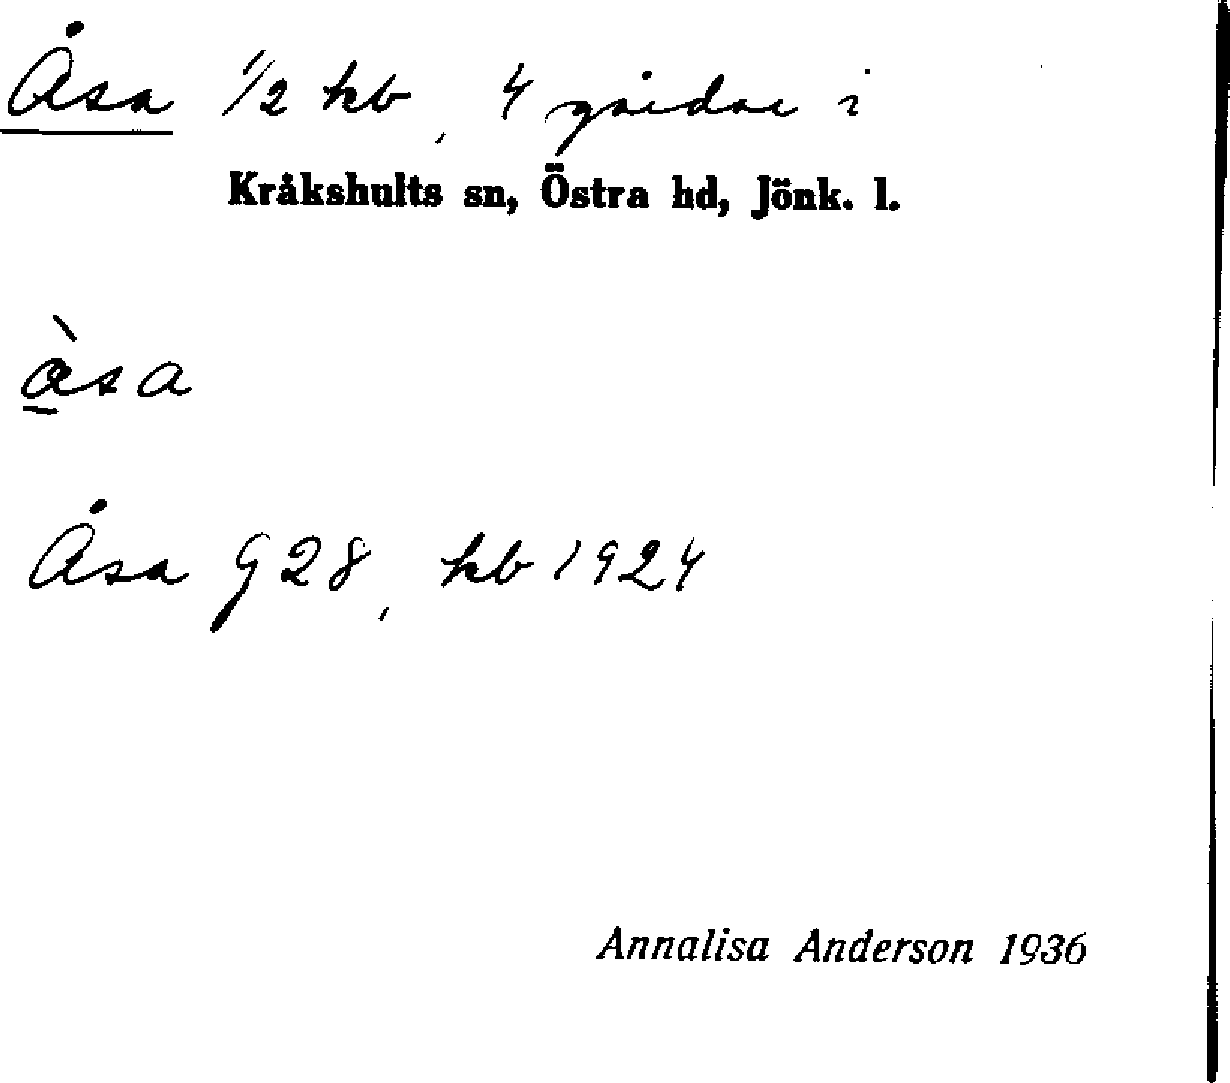 Åsa 1/2 hb, 4 gårdar i
Kråkshults sn, Östra hd, Jönk. l.
åsa
Åsa G28, hb 1924
Annalisa Anderson 1936